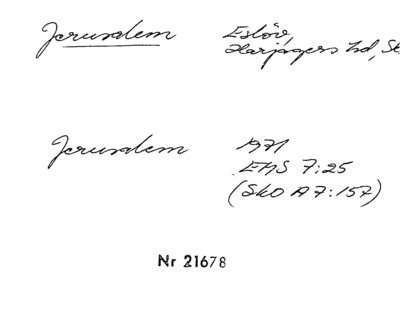 Jerusalem Eslöv,
Harjagers hd, Sk
Jerusalem 1971
EMS 7:25
(SkO A7:157)
Nr 21678